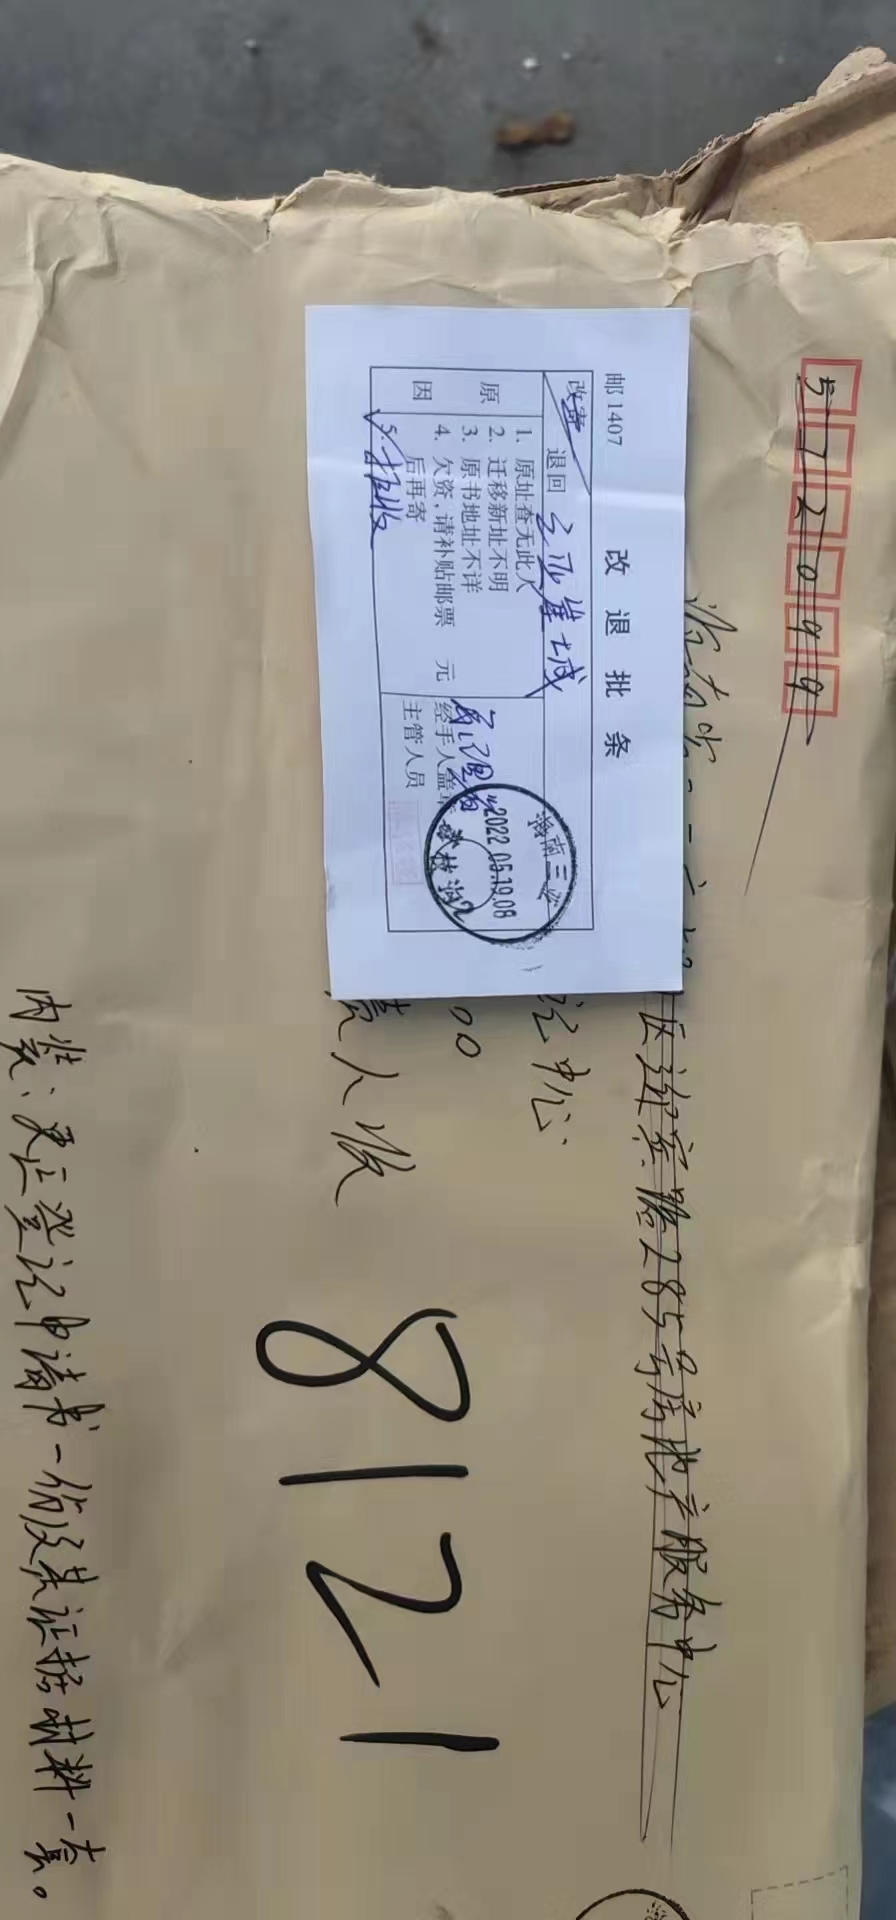 572099
海南省三亚
区迎宾路285号房地产服务中心
记中心
00
责人收
8121
内装：更正登记申请书一份及其证据材料一套。
邮1407
改退批条
改寄 退回 三亚崖城
原因
1. 原址查无此人
2. 迁移新址不明
3. 原书地址不详
4. 欠资，请补贴邮票 元
后再寄
5. 拒收
经手人盖章
主管人员
海南三亚
2022.05.19.08